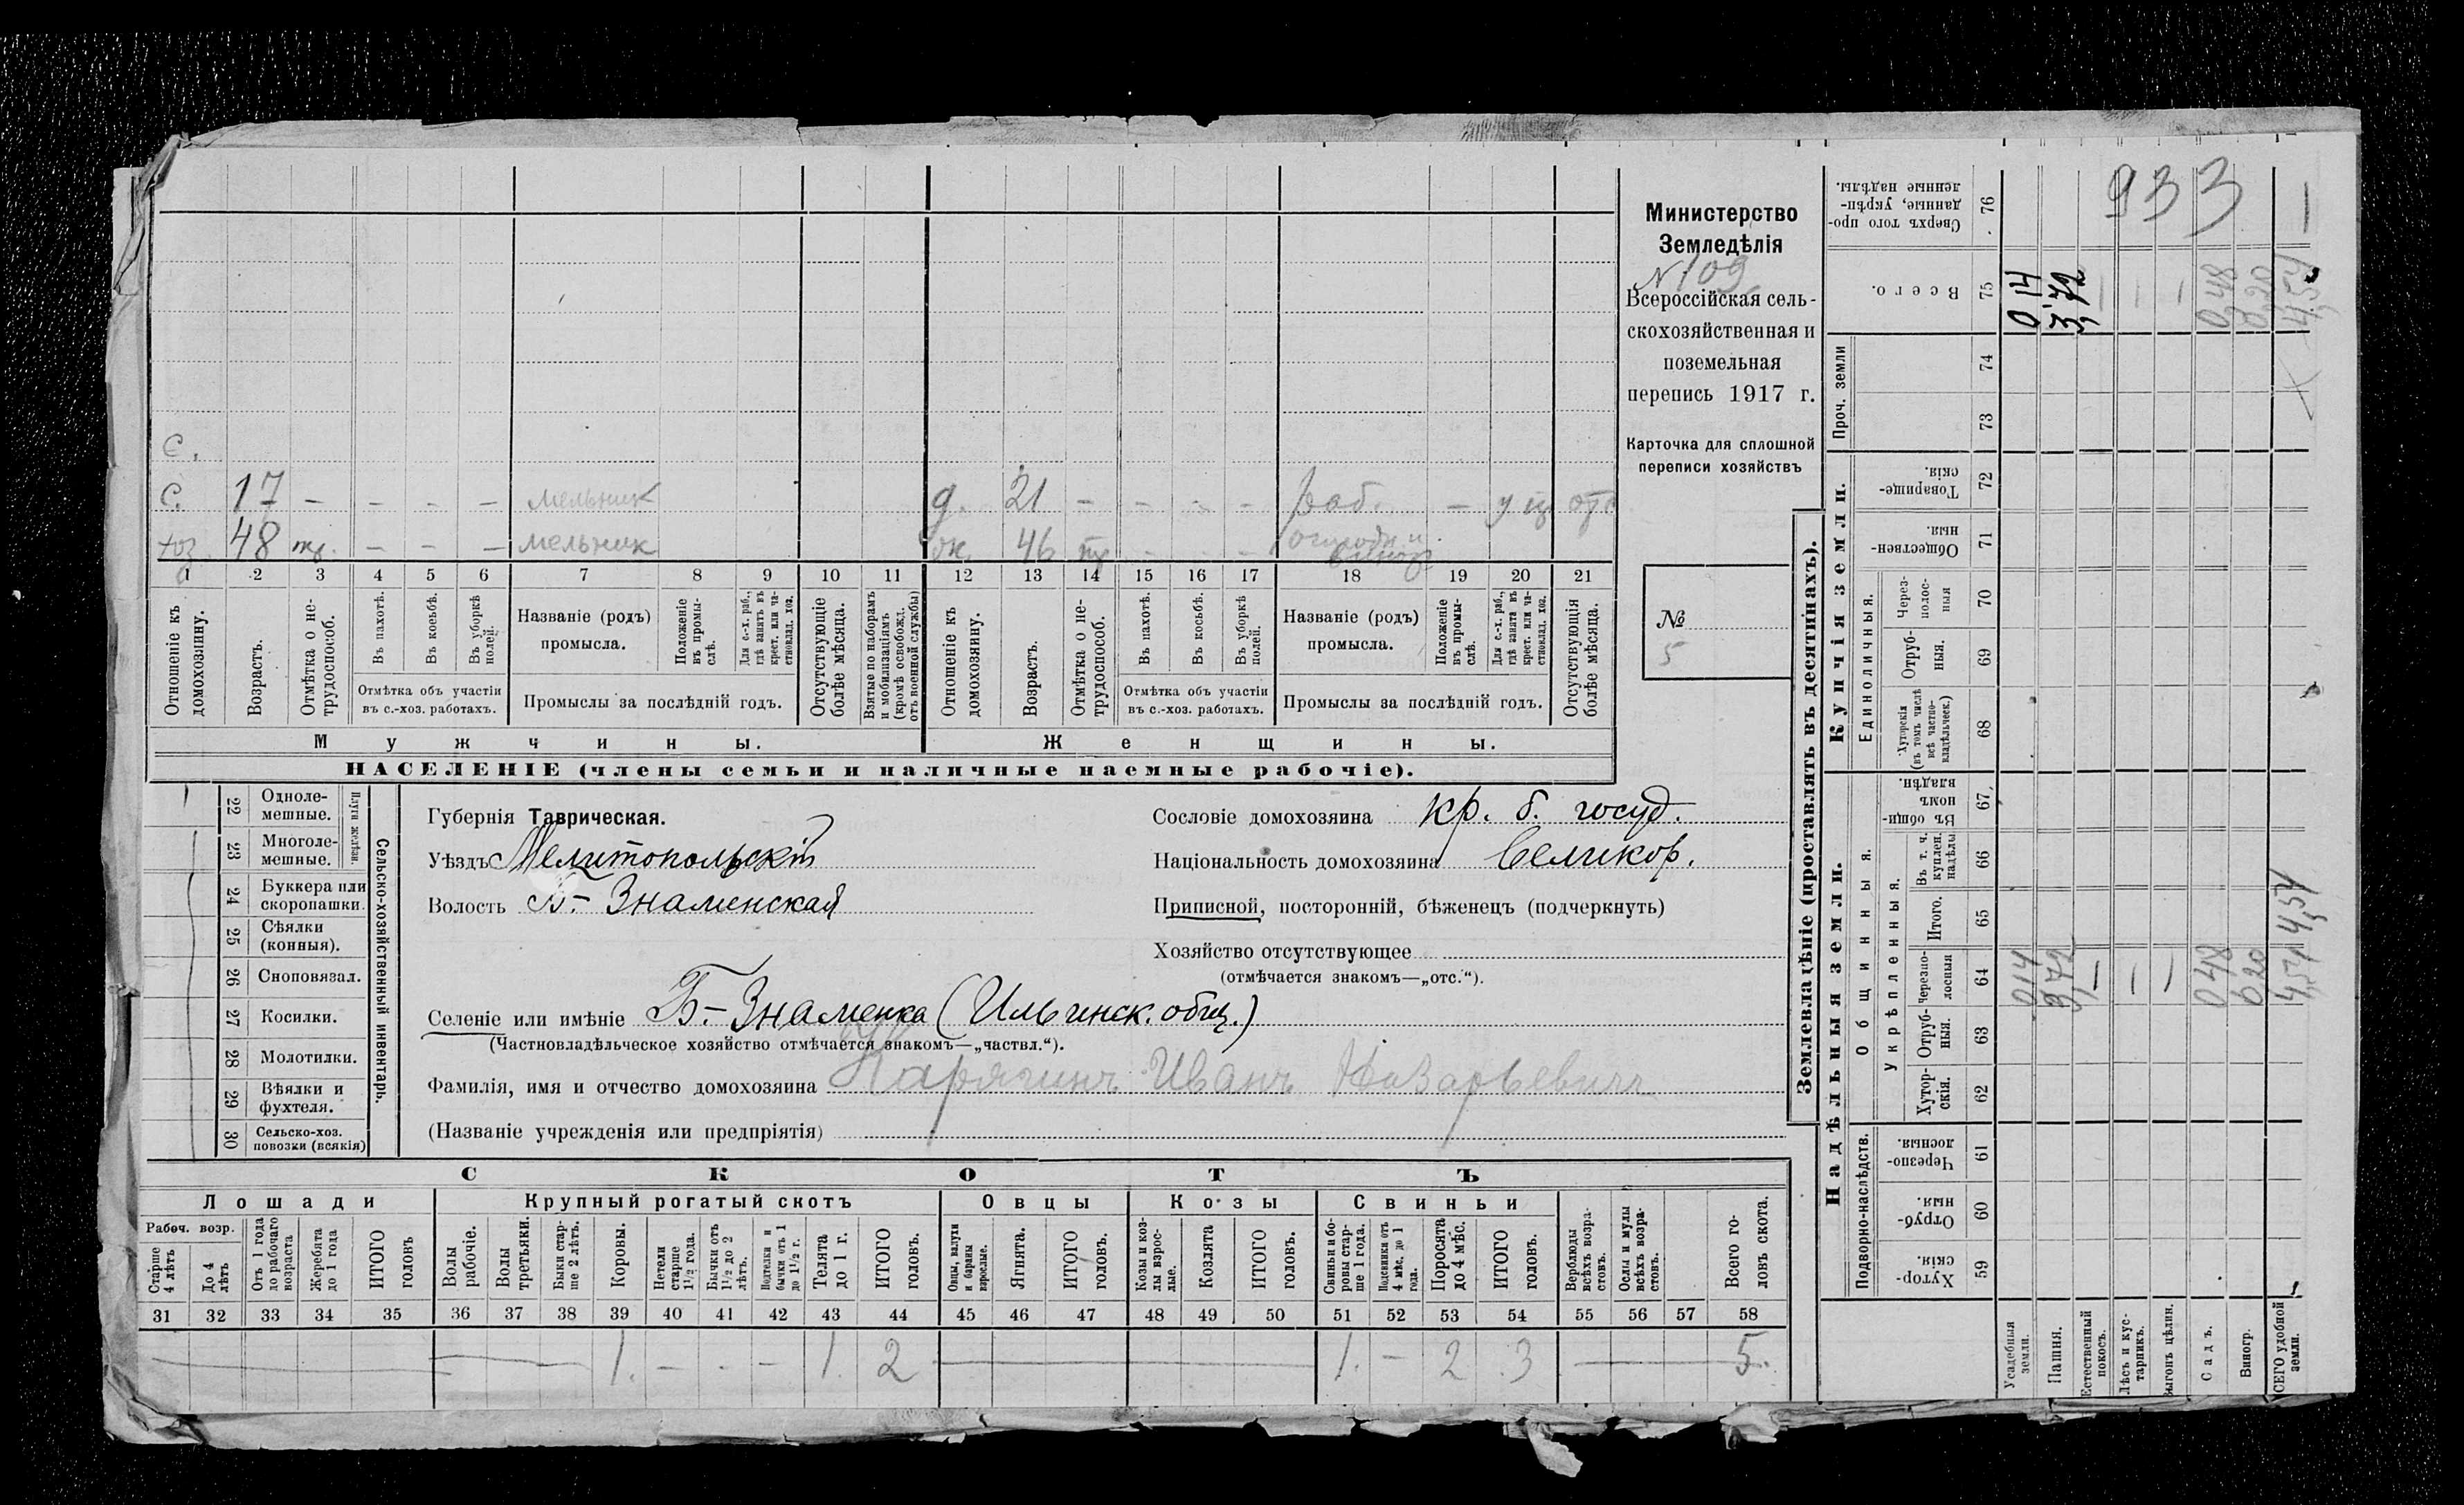 Министерство
Земледѣлія
N 109
Всероссійская сель-
скохозяйственная и
поземельная
перепись 1917 г.
Карточка для сплошной
переписи хозяйствъ
№
5
с.
с. 17 – – – – мельникъ д. 21 – – – – раб. –
хоз. 48 – – – мельник 46 – – –
1 2 3 4 5 6 7 8 9 10 11 12 13 14 15 16 17 18 19 20 21
Отношеніе къ домохозяину.
Возрастъ.
Отмѣтка о не-трудоспособ.
Въ пахотѣ.
Въ косьбѣ.
Въ уборкѣ полей.
Отмѣтка объ участіи въ с.-хоз. работахъ.
Названіе (родъ) промысла.
Положеніе въ промы-слѣ.
Для с.-х. раб., гдѣ занятъ въ крест. или ча-стновлад. хоз.
Промыслы за послѣдній годъ.
Отсутствующіе болѣе мѣсяца.
Взятые по наборамъ и мобилизаціямъ (кромѣ освобожд. отъ военной службы)
Отношеніе къ домохозяину.
Возрастъ.
Отмѣтка о не-трудоспособ.
Въ пахотѣ.
Въ косьбѣ.
Въ уборкѣ полей.
Отмѣтка объ участіи въ с.-хоз. работахъ.
Названіе (родъ) промысла.
Положеніе въ промы-слѣ.
Для с.-х. раб., гдѣ занята въ крест. или ча-стновлад. хоз.
Промыслы за послѣдній годъ.
Отсутствующія болѣе мѣсяца.
Мужчины. Женщины.
НАСЕЛЕНІЕ (члены семьи и наличные наемные рабочіе).
22 Одноле-мешные.
23 Многоле-мешные.
Плуги желѣзн.
24 Буккера или скоропашки.
25 Сѣялки (конныя).
26 Сноповязал.
27 Косилки.
28 Молотилки.
29 Вѣялки и фухтеля.
30 Сельско-хоз. повозки (всякія)
Сельско-хозяйственный инвентарь.
Губернія Таврическая.
Уѣздъ Мелитопольскій
Волость Б-Знаменская
Сословіе домохозяина кр. б. госуд.
Національность домохозяина Великор.
Приписной, посторонній, бѣженецъ (подчеркнуть)
Хозяйство отсутствующее
(отмѣчается знакомъ—„отс.“).
Селеніе или имѣніе Б-Знаменка (Ильинск. общ.)
(Частновладѣльческое хозяйство отмѣчается знакомъ—„частвл.“).
Фамилія, имя и отчество домохозяина Карягинъ Иванъ Назарьевичъ
(Названіе учрежденія или предпріятія)
СКОТЪ
Лошади Крупный рогатый скотъ Овцы Козы Свиньи
Рабоч. возр.
Старше 4 лѣтъ
До 4 лѣтъ
Отъ 1 года до рабочаго возраста
Жеребята до 1 года
ИТОГО головъ
Волы рабочіе.
Волы третьяки.
Быки стар-ше 2 лѣтъ.
Коровы.
Нетели старше 1½ года.
Бычки отъ 1½ до 2 лѣтъ.
Подтелки и бычки отъ 1 до 1½ г.
Телята до 1 г.
ИТОГО головъ.
Овцы, валухи и бараны взрослые.
Ягнята.
ИТОГО головъ.
Козы и коз-лы взрос-лые.
Козлята
ИТОГО головъ.
Свиньи и бо-ровы стар-ше 1 года.
Подсвинки отъ 4 мѣс. до 1 года.
Поросята до 4 мѣс.
ИТОГО головъ.
Верблюды всѣхъ возра-стовъ.
Ослы и мулы всѣхъ возра-стовъ.
Всего го-ловъ скота.
31 32 33 34 35 36 37 38 39 40 41 42 43 44 45 46 47 48 49 50 51 52 53 54 55 56 57 58
1. – – – 1. 2 1. – 2 3 5.
Землевладѣніе (проставлять въ десятинахъ).
Купчія земли.
Надѣльныя земли.
Проч. земли
Единоличныя.
Общинныя.
Укрѣпленныя.
Подворно-наслѣдств.
Сверхъ того про-данные, укрѣп-ленные надѣлы. 76
Всего. 75
74
73
Товарище-скія. 72
Обществен-ныя. 71
Через-полос-ныя 70
Отруб-ныя. 69
Хуторскія (въ томъ числѣ всѣ частно-владѣльческ.) 68
Въ общи-номъ владѣн. 67
Въ т. ч. куплен. надѣлы 66
Итого. 65
Черезпо-лосныя 64
Отруб-ныя. 63
Хутор-скія. 62
Черезпо-лосныя. 61
Отруб-ныя. 60
Хутор-скія. 59
Усадебныя земли.
Пашня.
Естественный покосъ.
Лѣсъ и кус-тарникъ.
Выгонъ цѣлин.
Садъ.
Виногр.
ВСЕГО удобной земли.
933
0 14
3,72
0,48
0,20
4,54
014
3,72
048
0,20
4,54
4,54